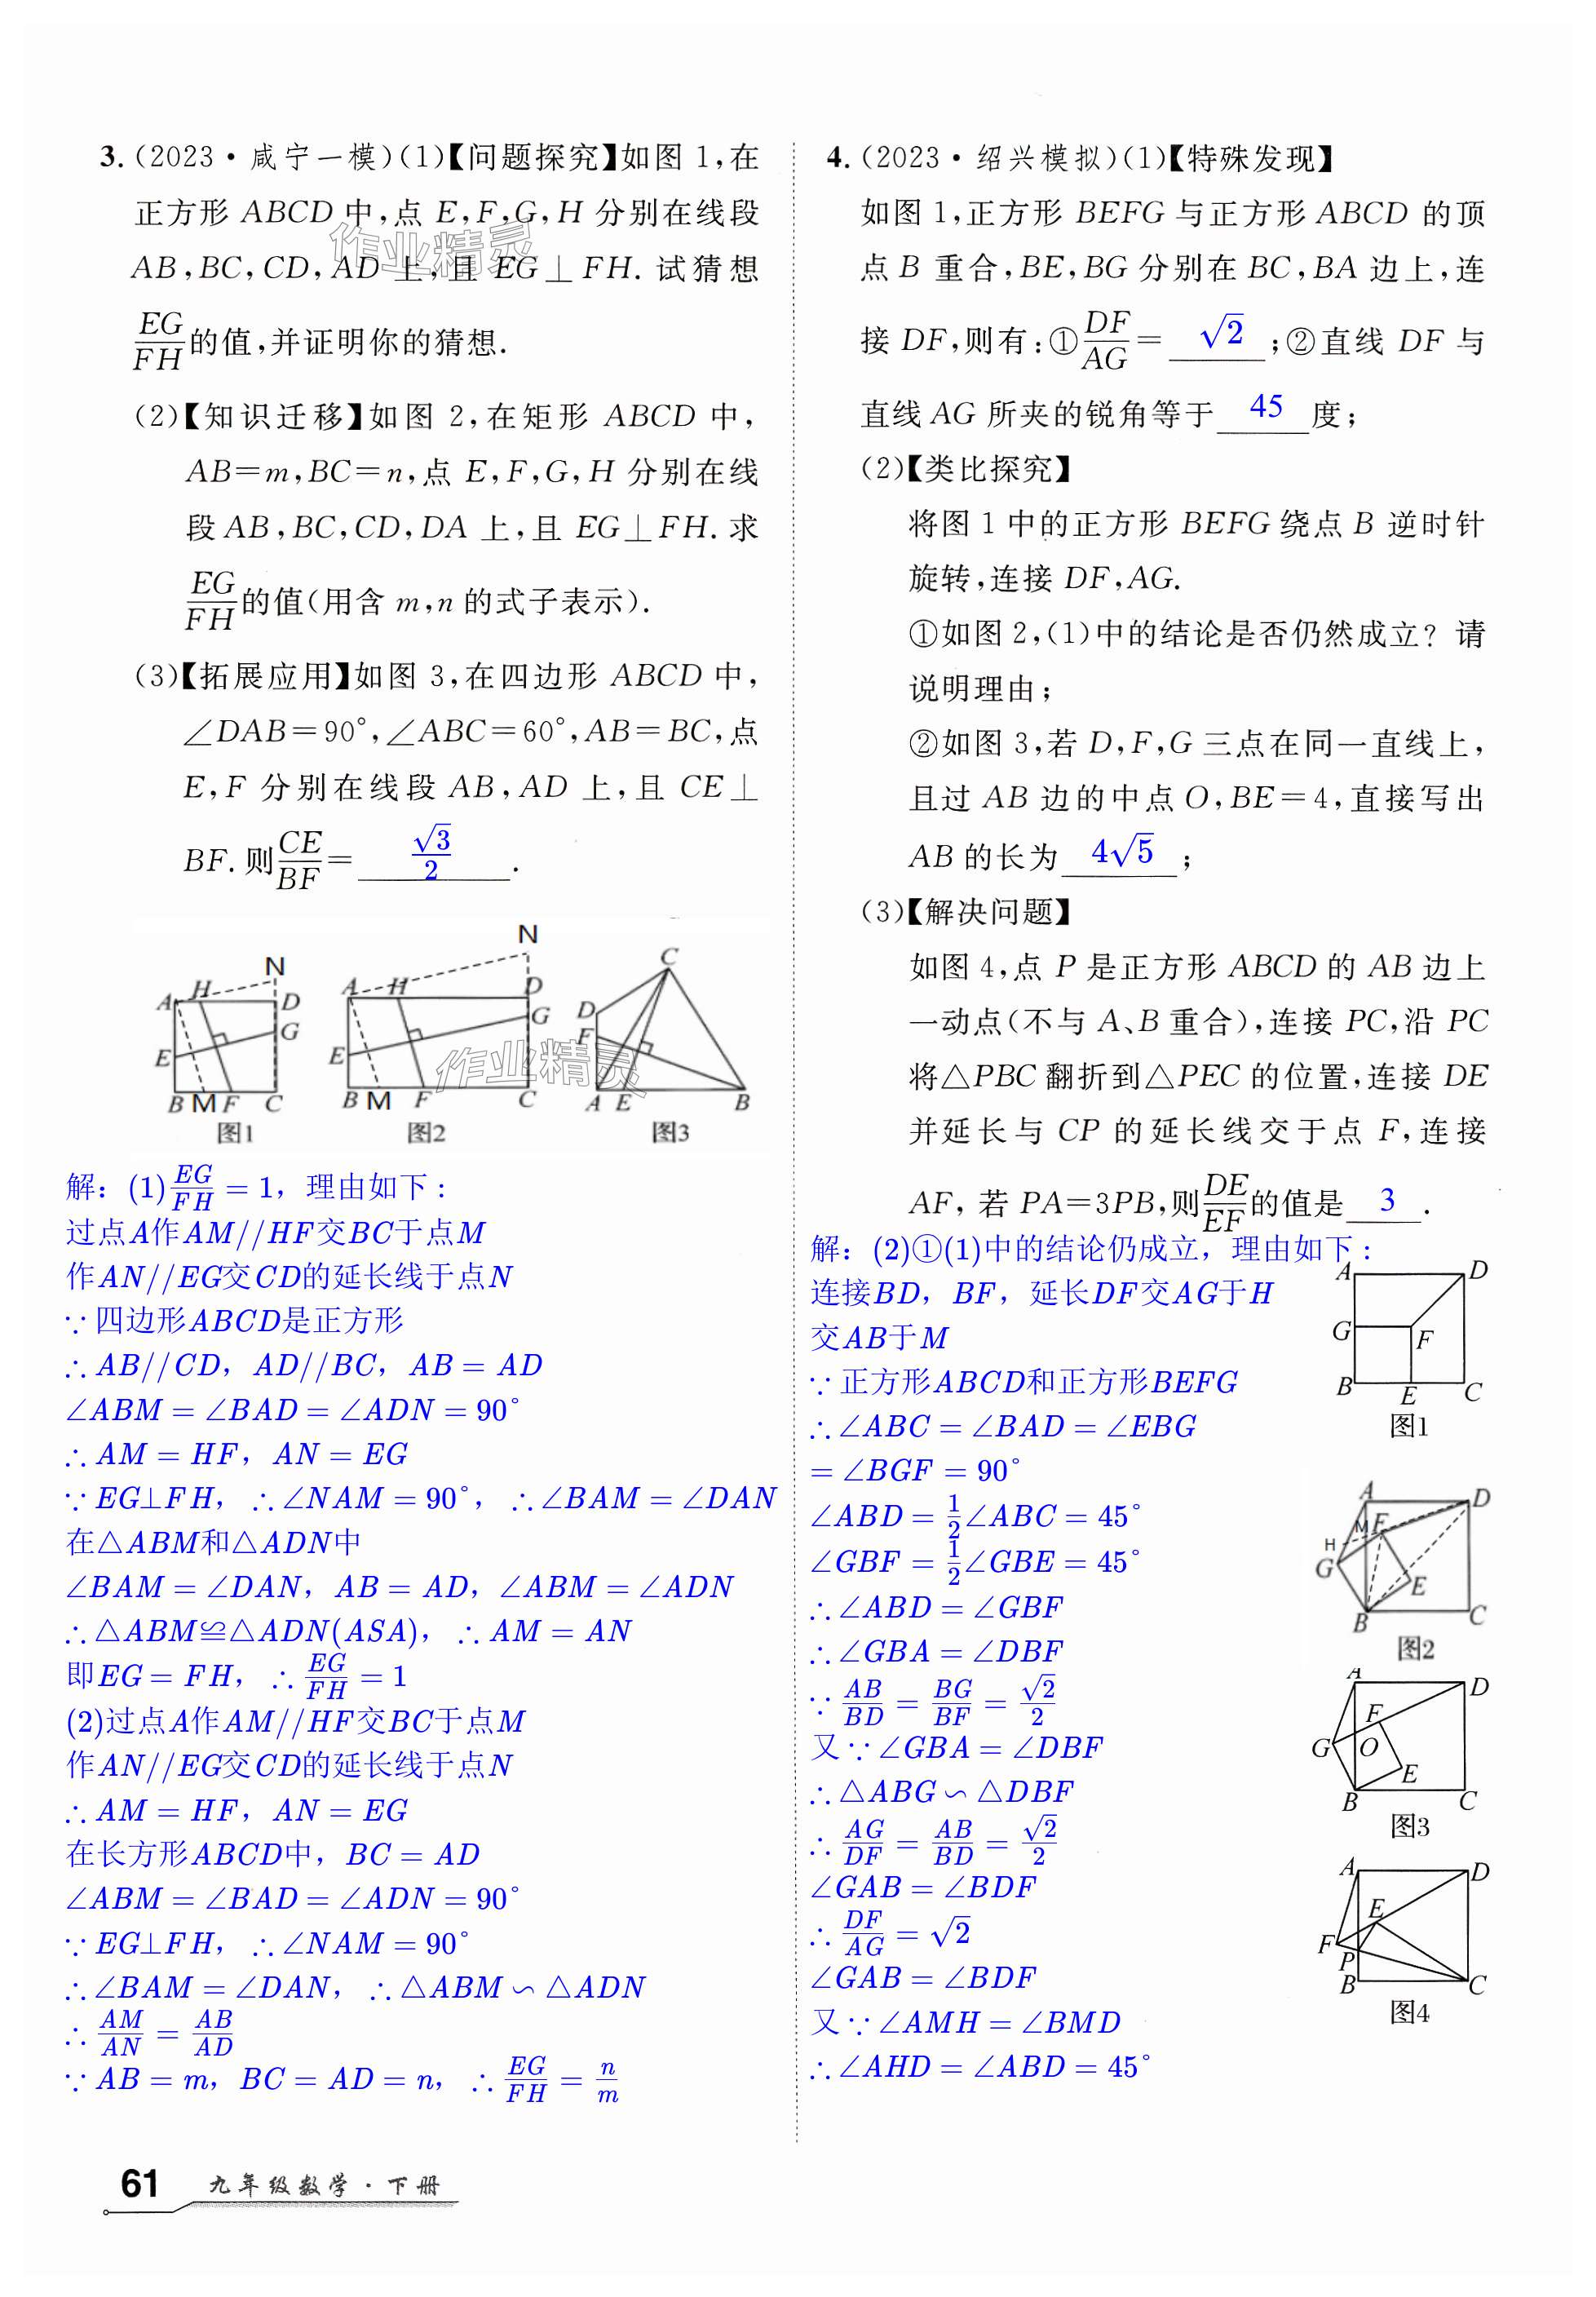 3.(2023·咸宁一模)(1)【问题探究】如图 1,在
正方形 ABCD 中,点 E,F,G,H 分别在线段
AB,BC,CD,AD 上,且 EG⊥FH.试猜想
EG/FH的值,并证明你的猜想.
(2)【知识迁移】如图 2,在矩形 ABCD 中,
AB=m,BC=n,点 E,F,G,H 分别在线
段 AB,BC,CD,DA 上,且 EG⊥FH.求
EG/FH的值(用含 m,n 的式子表示).
(3)【拓展应用】如图 3,在四边形 ABCD 中,
∠DAB=90°,∠ABC=60°,AB=BC,点
E,F 分别在线段 AB,AD 上,且 CE⊥
BF.则CE/BF=√3/2.
作业精灵
A H N D G E B M F C
图1
A H N D G E B M F C
图2
C D F A E B
图3
作业精灵
解：(1)EG/FH=1，理由如下：
过点A作AM//HF交BC于点M
作AN//EG交CD的延长线于点N
∵四边形ABCD是正方形
∴AB//CD，AD//BC，AB=AD
∠ABM=∠BAD=∠ADN=90°
∴AM=HF，AN=EG
∵EG⊥FH，∴∠NAM=90°，∴∠BAM=∠DAN
在△ABM和△ADN中
∠BAM=∠DAN，AB=AD，∠ABM=∠ADN
∴△ABM≌△ADN(ASA)，∴AM=AN
即EG=FH，∴EG/FH=1
(2)过点A作AM//HF交BC于点M
作AN//EG交CD的延长线于点N
∴AM=HF，AN=EG
在长方形ABCD中，BC=AD
∠ABM=∠BAD=∠ADN=90°
∵EG⊥FH，∴∠NAM=90°
∴∠BAM=∠DAN，∴△ABM∽△ADN
∴AM/AN=AB/AD
∵AB=m，BC=AD=n，∴EG/FH=n/m
61 九年级数学·下册
4.(2023·绍兴模拟)(1)【特殊发现】
如图 1,正方形 BEFG 与正方形 ABCD 的顶
点 B 重合,BE,BG 分别在 BC,BA 边上,连
接 DF,则有:①DF/AG=√2;②直线 DF 与
直线 AG 所夹的锐角等于45度;
(2)【类比探究】
将图 1 中的正方形 BEFG 绕点 B 逆时针
旋转,连接 DF,AG.
①如图 2,(1)中的结论是否仍然成立? 请
说明理由;
②如图 3,若 D,F,G 三点在同一直线上,
且过 AB 边的中点 O,BE=4,直接写出
AB 的长为4√5;
(3)【解决问题】
如图 4,点 P 是正方形 ABCD 的 AB 边上
一动点(不与 A、B 重合),连接 PC,沿 PC
将△PBC 翻折到△PEC 的位置,连接 DE
并延长与 CP 的延长线交于点 F,连接
AF, 若 PA=3PB,则DE/EF的值是3.
解：(2)①(1)中的结论仍成立，理由如下：
连接BD，BF，延长DF交AG于H
交AB于M
∵正方形ABCD和正方形BEFG
∴∠ABC=∠BAD=∠EBG
=∠BGF=90°
∠ABD=1/2∠ABC=45°
∠GBF=1/2∠GBE=45°
∴∠ABD=∠GBF
∴∠GBA=∠DBF
∵AB/BD=BG/BF=√2/2
又∵∠GBA=∠DBF
∴△ABG∽△DBF
∴AG/DF=AB/BD=√2/2
∠GAB=∠BDF
∴DF/AG=√2
∠GAB=∠BDF
又∵∠AMH=∠BMD
∴∠AHD=∠ABD=45°
A D G F B E C
图1
A D M F H G E B C
图2
A D F G O E B C
图3
A D E F P B C
图4